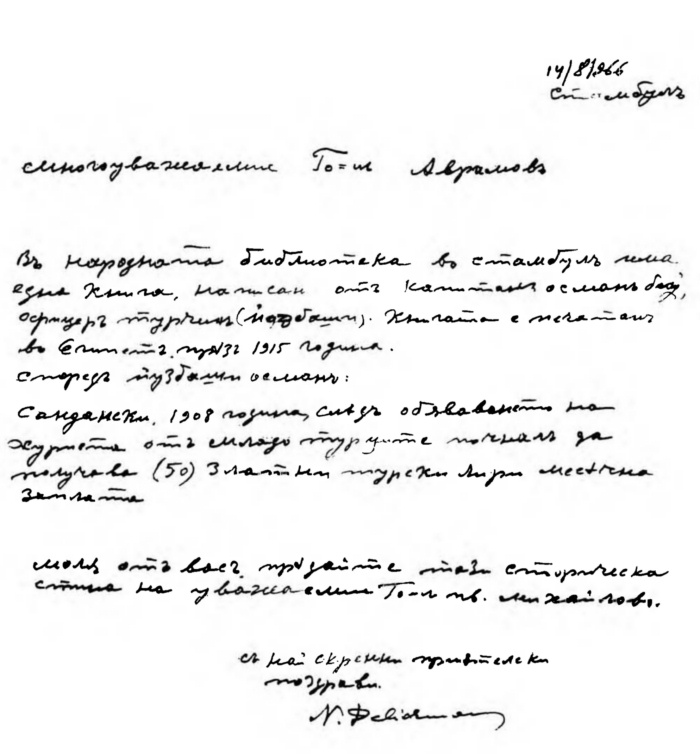 14/8/966
Стамбулъ
многоуважаемие Го=нъ Аврамовъ
Въ народната библиотека во стамбулъ има
една книга, написан отъ капитанъ османъ беӥ,
офицеръ турчинъ (йозбаши). Книгата е печатан
во Египетъ, презъ 1915 година.
според йузбашиосманъ:
Сандански, 1908 година, следъ обяваването на
хуриета отъ младо турците почналъ да
получава (50) златни турски лири месечна
заплата
моля отъ васъ предайте тази сторическа
стина на уважаемие Го-нъ ив. михайловъ.
съ наӥ скренни приятелски
поздрави.
N.